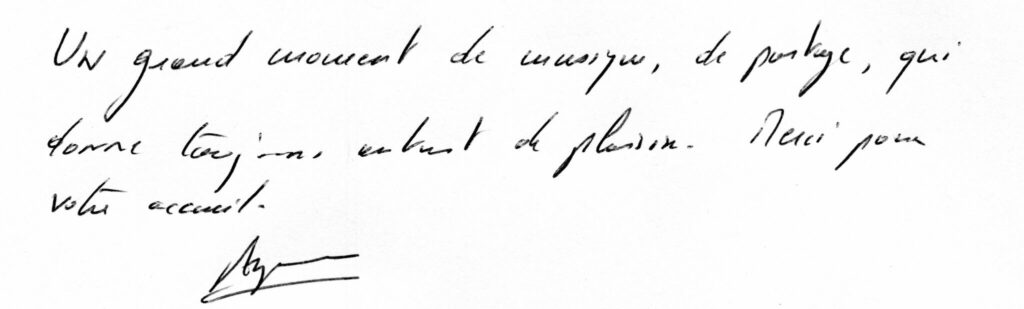 Un grand moment de musique, de partage, qui
donne toujours autant de plaisir. Merci pour
votre accueil.